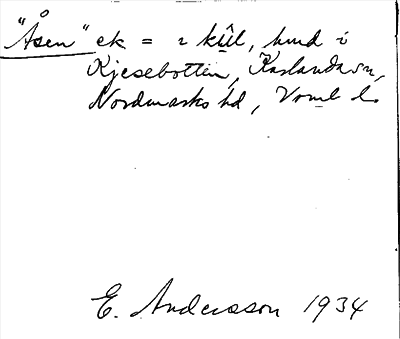 "Åsen" ek = i kûl, hmd i
Kjesebotten, Karlanda sn,
Nordmarks hd, Verml l.
E. Andersson 1934